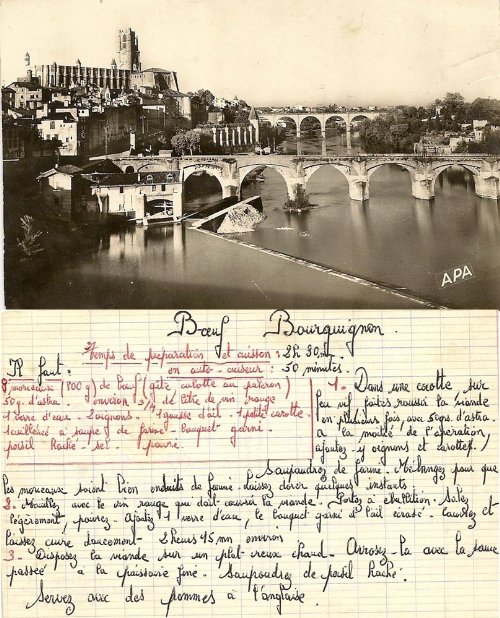 APA
Bœuf Bourguignon.
Temps de préparation et cuisson : 2h 30 mn
en auto-cuiseur : 50 minutes.
Il faut :
8 morceaux (800 g) de bœuf (gîte culotte ou paleron)
50 g. d'astra. environ 3/4 de litre de vin rouge
1 verre d'eau - 2 oignons - 1 gousse d'ail - 1 petite carotte.
1 cuillerée à soupe de farine - bouquet garni.
persil haché - sel poivre
1 - Dans une cocotte sur
feu vif faites roussir la viande
en plusieurs fois, avec 50 grs d'astra.
à la moitié de l'opération,
ajoutez y oignons et carottes.
Saupoudrez de farine - Mélangez pour que
les morceaux soient bien enduits de farine - laissez dorer quelques instants.
2 - Mouillez avec le vin rouge qui doit couvrir la viande - Portez à ébullition - Salez
légèrement, poivrez - Ajoutez 1 verre d'eau, le bouquet garni et l'ail écrasé - Couvrez et
laissez cuire doucement 2 heures 15 mn environ
3 - Disposez la viande sur un plat creux chaud - Arrosez-la avec la sauce
passée à la passoire fine - Saupoudrez de persil haché.
Servez avec des pommes à l'anglaise.